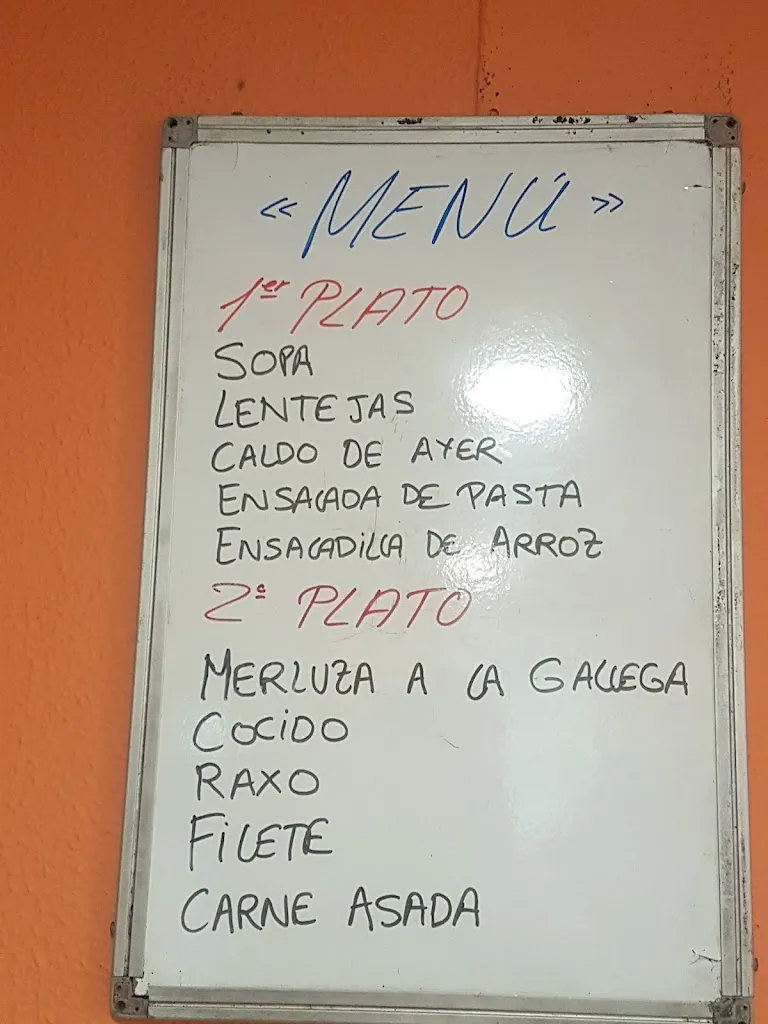 « MENÚ »
1er PLATO
SOPA
LENTEJAS
CALDO DE AYER
ENSALADA DE PASTA
ENSALADILLA DE ARROZ
2º PLATO
MERLUZA A LA GALLEGA
COCIDO
RAXO
FILETE
CARNE ASADA